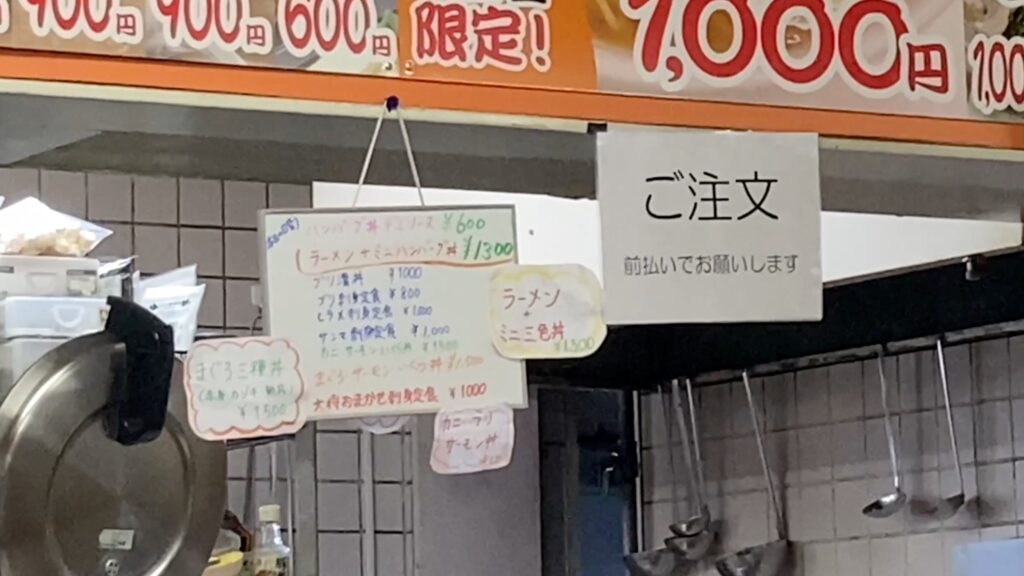 900円 900円 600円
限定!
1,000円
ご注文
前払いでお願いします
ハンバーグ丼デミソース ¥600
ラーメン+ミニハンバーグ丼 ¥1300
ブリ漬丼 ¥1000
ブリ刺身定食 ¥800
ヒラメ刺身定食 ¥1,000
サンマ刺身定食 ¥1,000
カニサーモンいくら丼 ¥1500
まぐろサーモンいくら丼 ¥1,500
大将おまかせ刺身定食 ¥1000
ラーメン
+
ミニ三色丼
¥1,300
まぐろ三種丼
¥1500
カニ・ブリ
サーモン丼